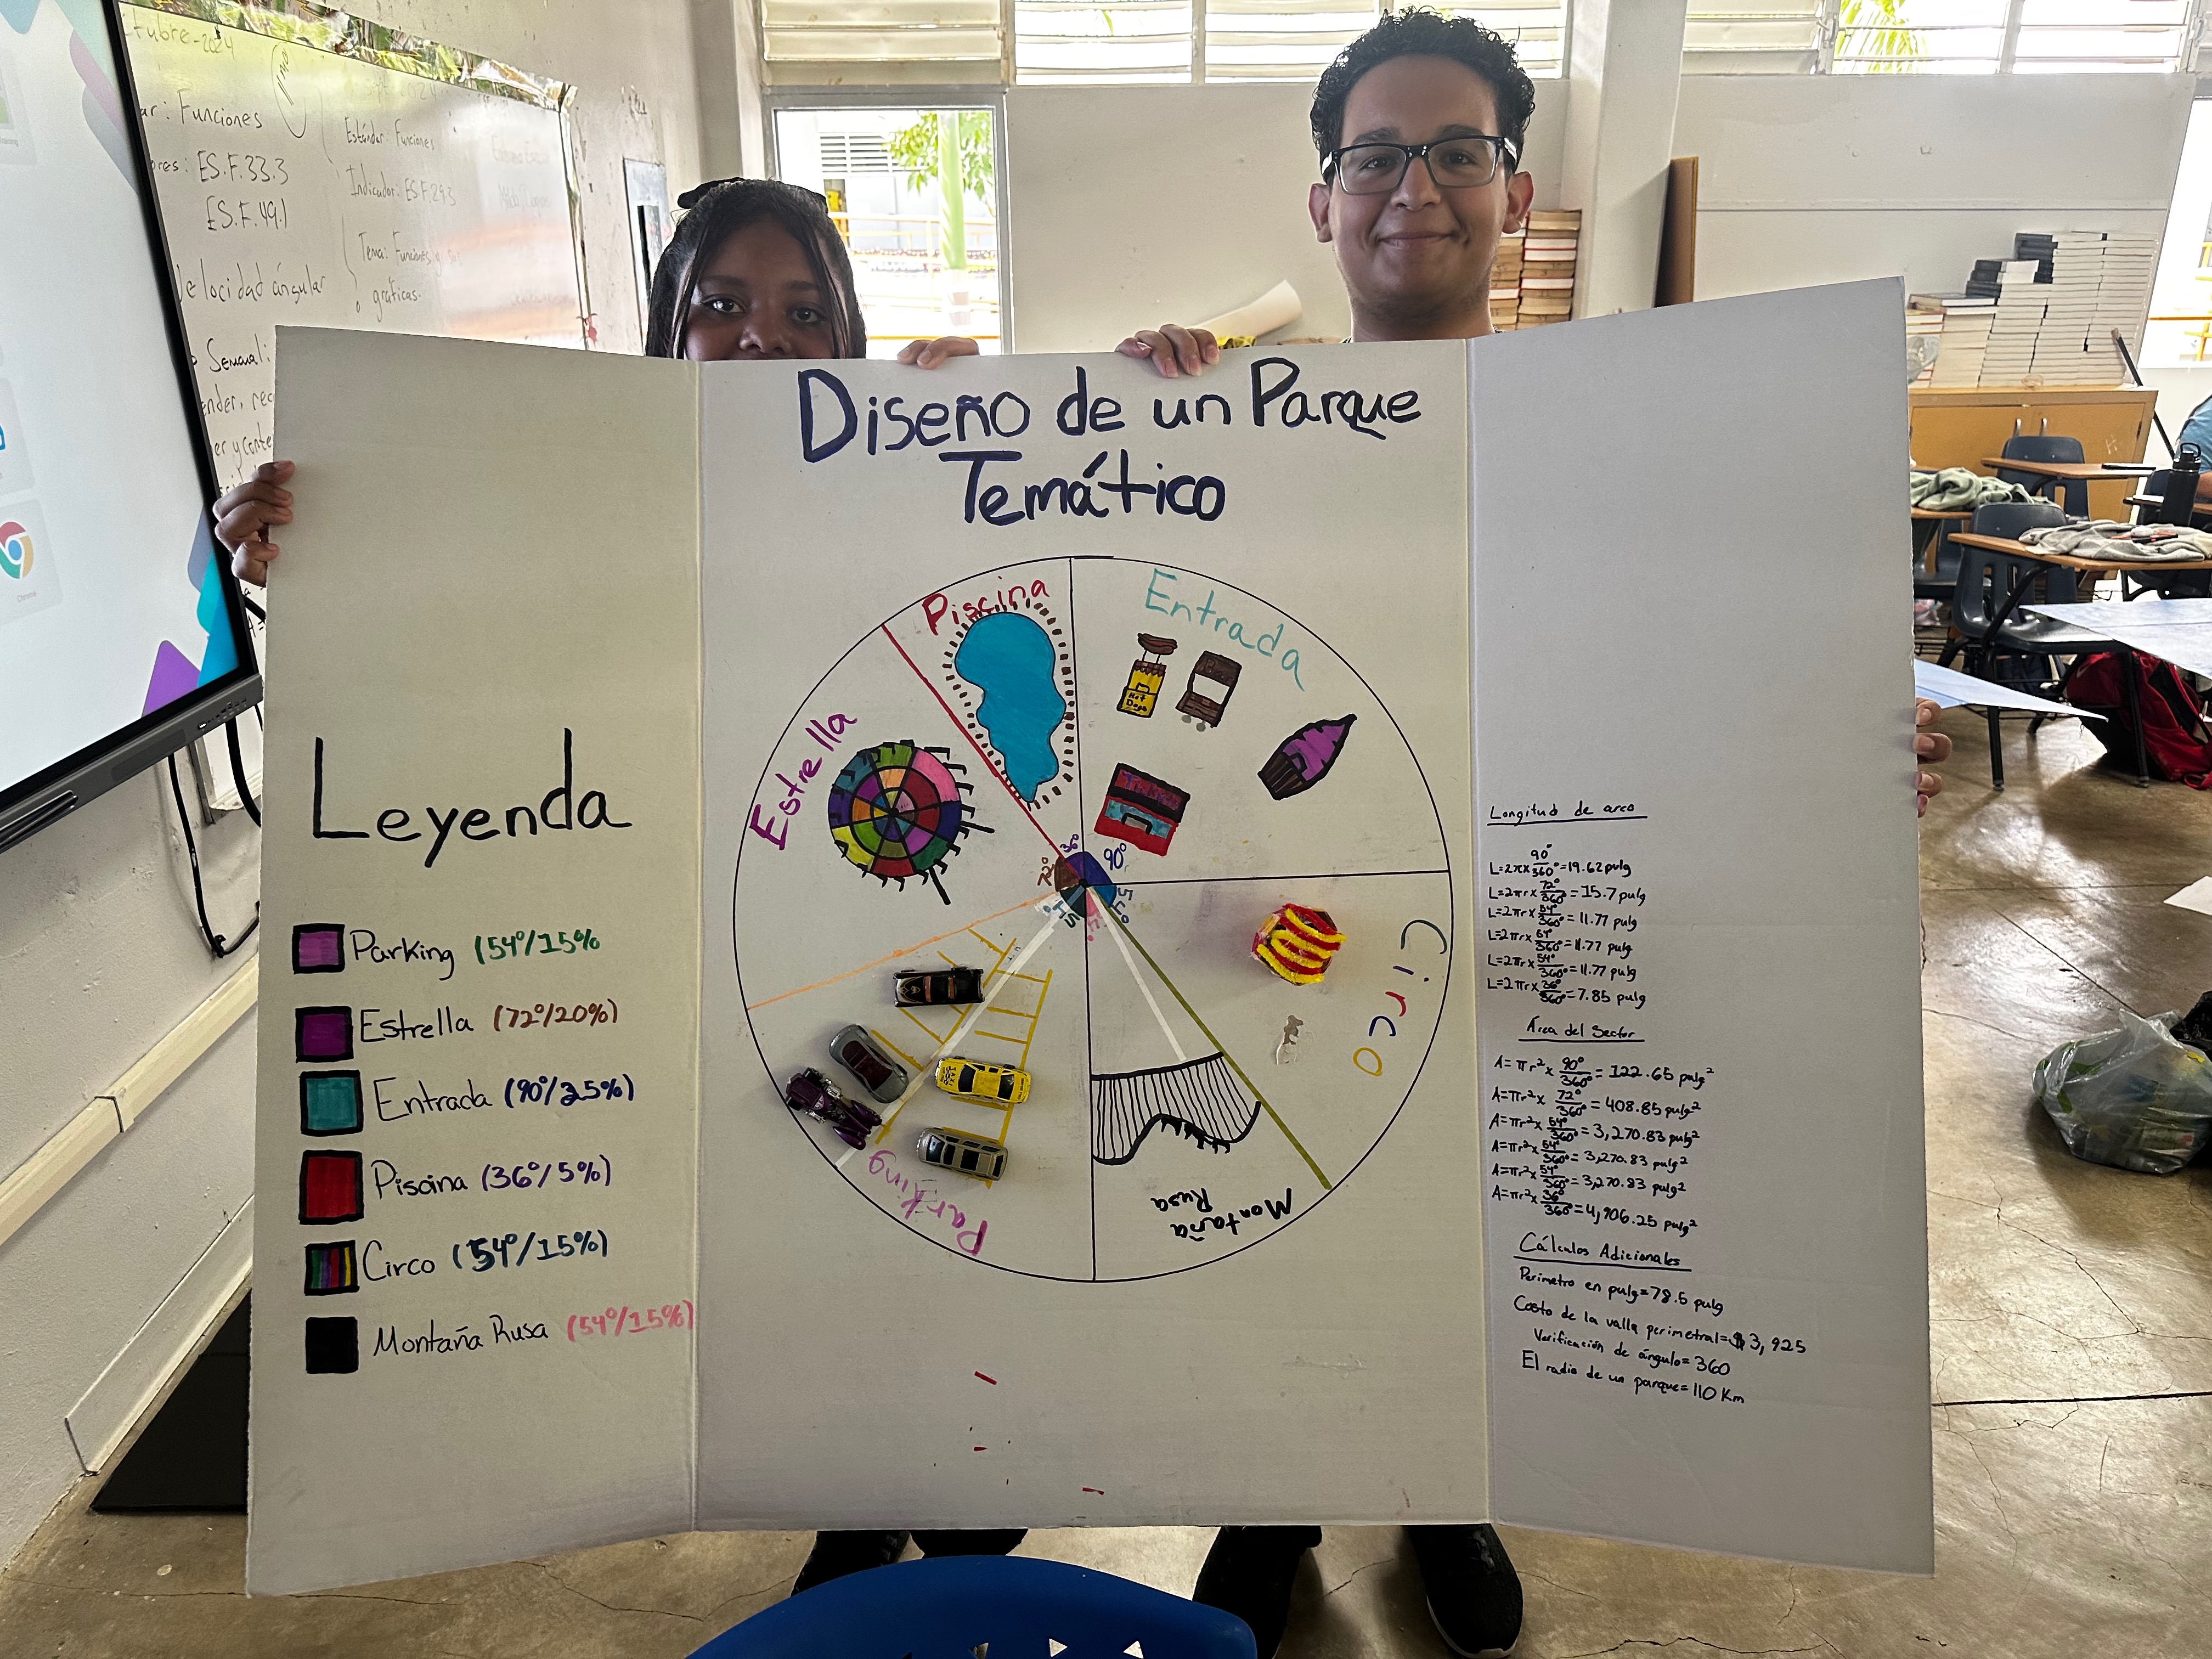 tubre-2024
ar: Funciones
ores: ES.F.33.3
ES.F.49.1
Velocidad ángular
Semanal:
ender, rec
er y conte
Estándar: Funciones
Indicador: ES.F.29.3
Tema: Funciones y sus
gráficas.
Chrome
Diseño de un Parque
Temático
Piscina
Entrada
Estrella
Hot
Dogs
36°
90°
72°
54°
Circo
Parking
Montaña
Rusa
Leyenda
Parking (54°/15%
Estrella (72°/20%)
Entrada (90°/25%)
Piscina (36°/5%)
Circo (54°/15%)
Montaña Rusa (54°/15%)
Longitud de arco
L=2πx 90°/360°=19.62 pulg
L=2πr x 72°/360°=15.7 pulg
L=2πr x 54°/360°=11.77 pulg
L=2πr x 54°/360°=11.77 pulg
L=2πr x 54°/360°=11.77 pulg
L=2πr x 36°/360°=7.85 pulg
Área del Sector
A= πr² x 90°/360°= 122.65 pulg²
A=πr² x 72°/360°= 408.85 pulg²
A=πr² x 54°/360°= 3,270.83 pulg²
A=πr² x 54°/360°= 3,270.83 pulg²
A=πr² x 54°/360°= 3,270.83 pulg²
A=πr² x 36°/360°=4,906.25 pulg²
Cálculos Adicionales
Perimetro en pulg=78.5 pulg
Costo de la valla perimetral=$3,925
Verificación de ángulo=360
El radio de un parque=110 Km